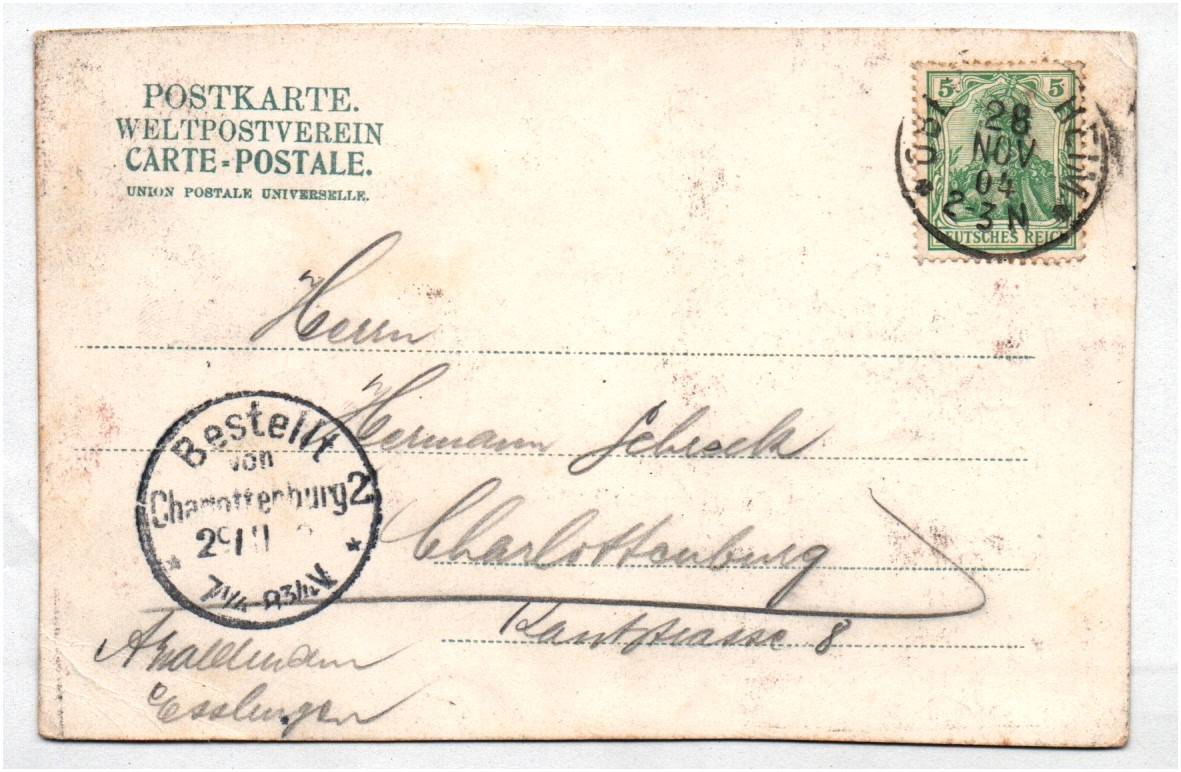 POSTKARTE.
WELTPOSTVEREIN
CARTE-POSTALE.
UNION POSTALE UNIVERSELLE.
5 5
28
NOV
04
2-3 N
DEUTSCHES REICH
HEIM
Herrn
Hermann Schreck
Charlottenburg
Kantstrasse 8
Bestellt
von
Charlottenburg 2
29 11
7¼-8¾V
Esslingen